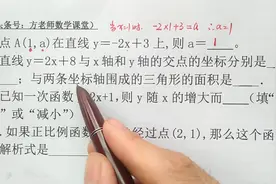 条号：方老师数学课堂）
当x=1时，-2×1+3=a ∴a=1
点 A(1,a)在直线 y=-2x+3 上，则 a= 1 。
直线 y=-2x+8 与 x 轴和 y 轴的交点的坐标分别是
”；与两条坐标轴围成的三角形的面积是 .
已知一次函数 2x+1，则 y 随 x 的增大而 （填“
”或“减小”）
.如果正比例函数 经过点(2,1)，那么这个函
解析式是